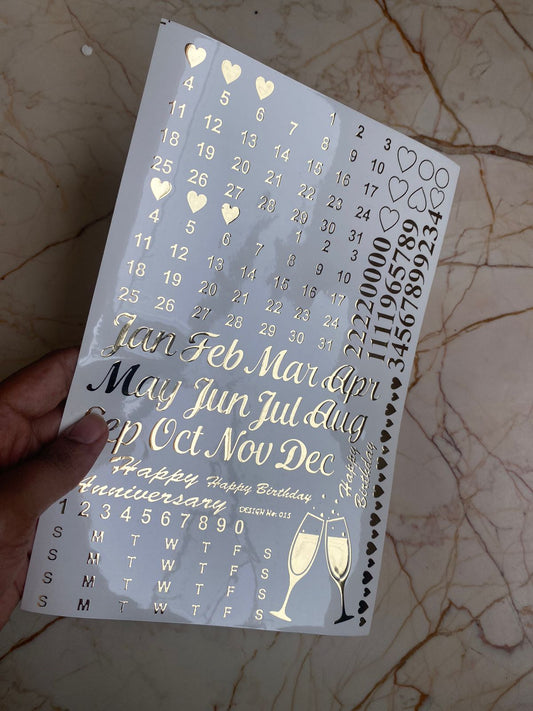 1 2 3
4 5 6 7 8 9 10
11 12 13 14 15 16 17
18 19 20 21 22 23 24
25 26 27 28 29 30 31
1 2 3
4 5 6 7 8 9 10
11 12 13 14 15 16 17
18 19 20 21 22 23 24
25 26 27 28 29 30 31
22220000
1111965789
34567899234
Jan Feb Mar Apr
May Jun Jul Aug
Sep Oct Nov Dec
Happy
Anniversary
Happy Birthday
DESIGN No: 015
Happy
Birthday
1 2 3 4 5 6 7 8 9 0
S M T W T F S
S M T W T F S
S M T W T F S
S M T W T F S